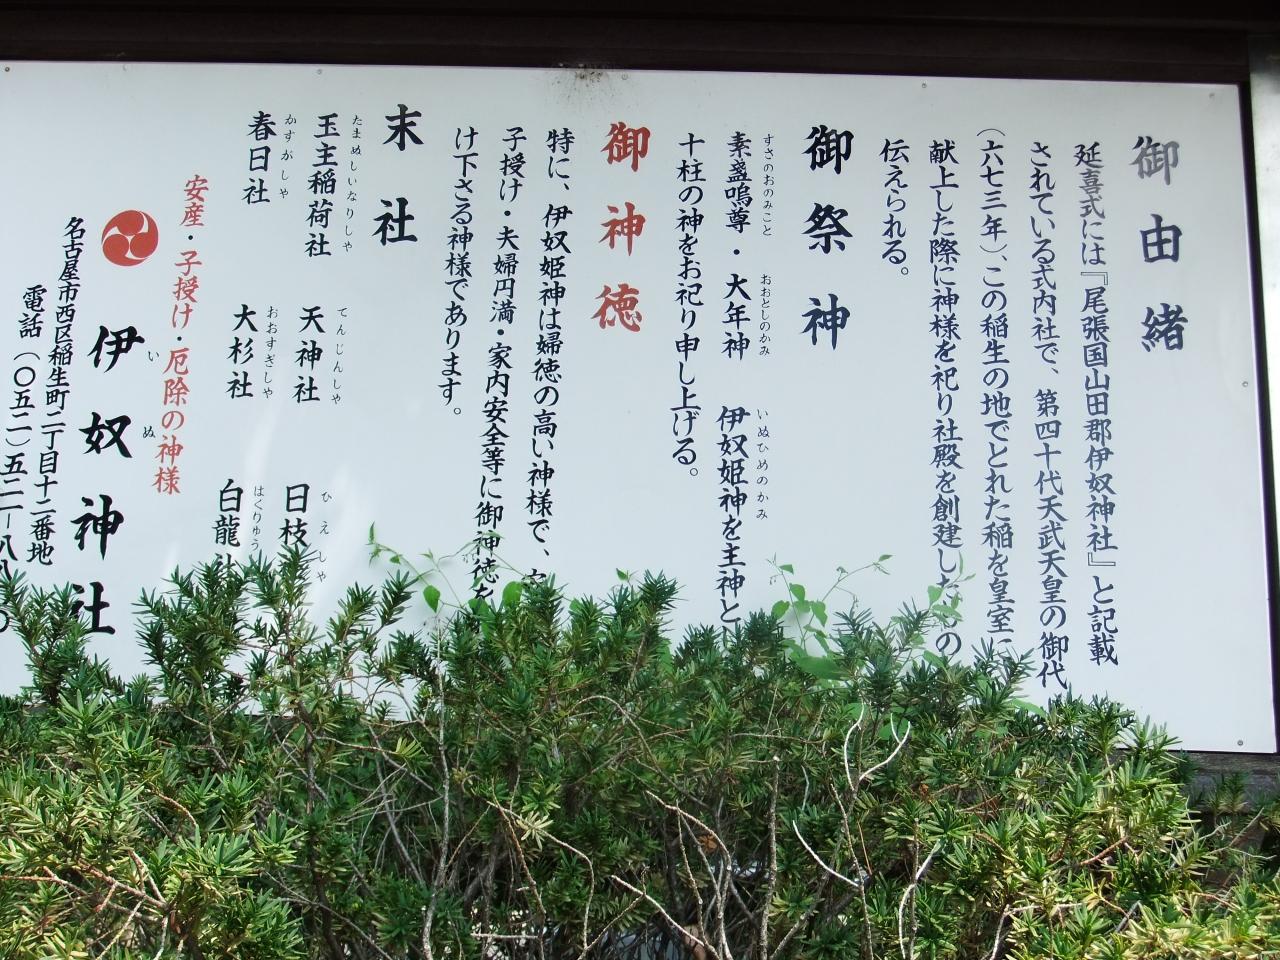 御由緒
延喜式には『尾張国山田郡伊奴神社』と記載
されている式内社で、第四十代天武天皇の御代
(六七三年)、この稲生の地でとれた稲を皇室に
献上した際に神様を祀り社殿を創建した
の
伝えられる。
御祭神
すさのおのみこと おおとしのかみ いぬひめのかみ
素盞嗚尊・大年神 伊奴姫神を主神と
十柱の神をお祀り申し上げる。
御神徳
特に、伊奴姫神は婦徳の高い神様で、
子授け・夫婦円満・家内安全等に御神徳を
け下さる神様であります。
末社
たまぬしいなりしゃ てんじんしゃ ひえしゃ
玉主稲荷社 天神社 日枝
かすがしゃ おおすぎしゃ はくりゅう
春日社 大杉社 白龍社
安産・子授け・厄除の神様
いぬ
伊奴神社
名古屋市西区稲生町二丁目十二番地
電話(〇五二)五二一-八八
〇